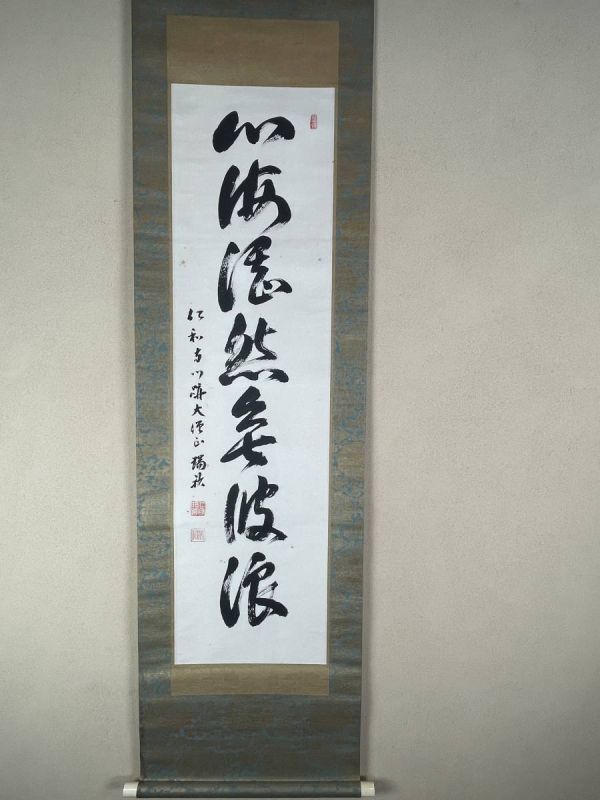 心海湛然無波浪
仁和寺門跡大僧正 瑞秋